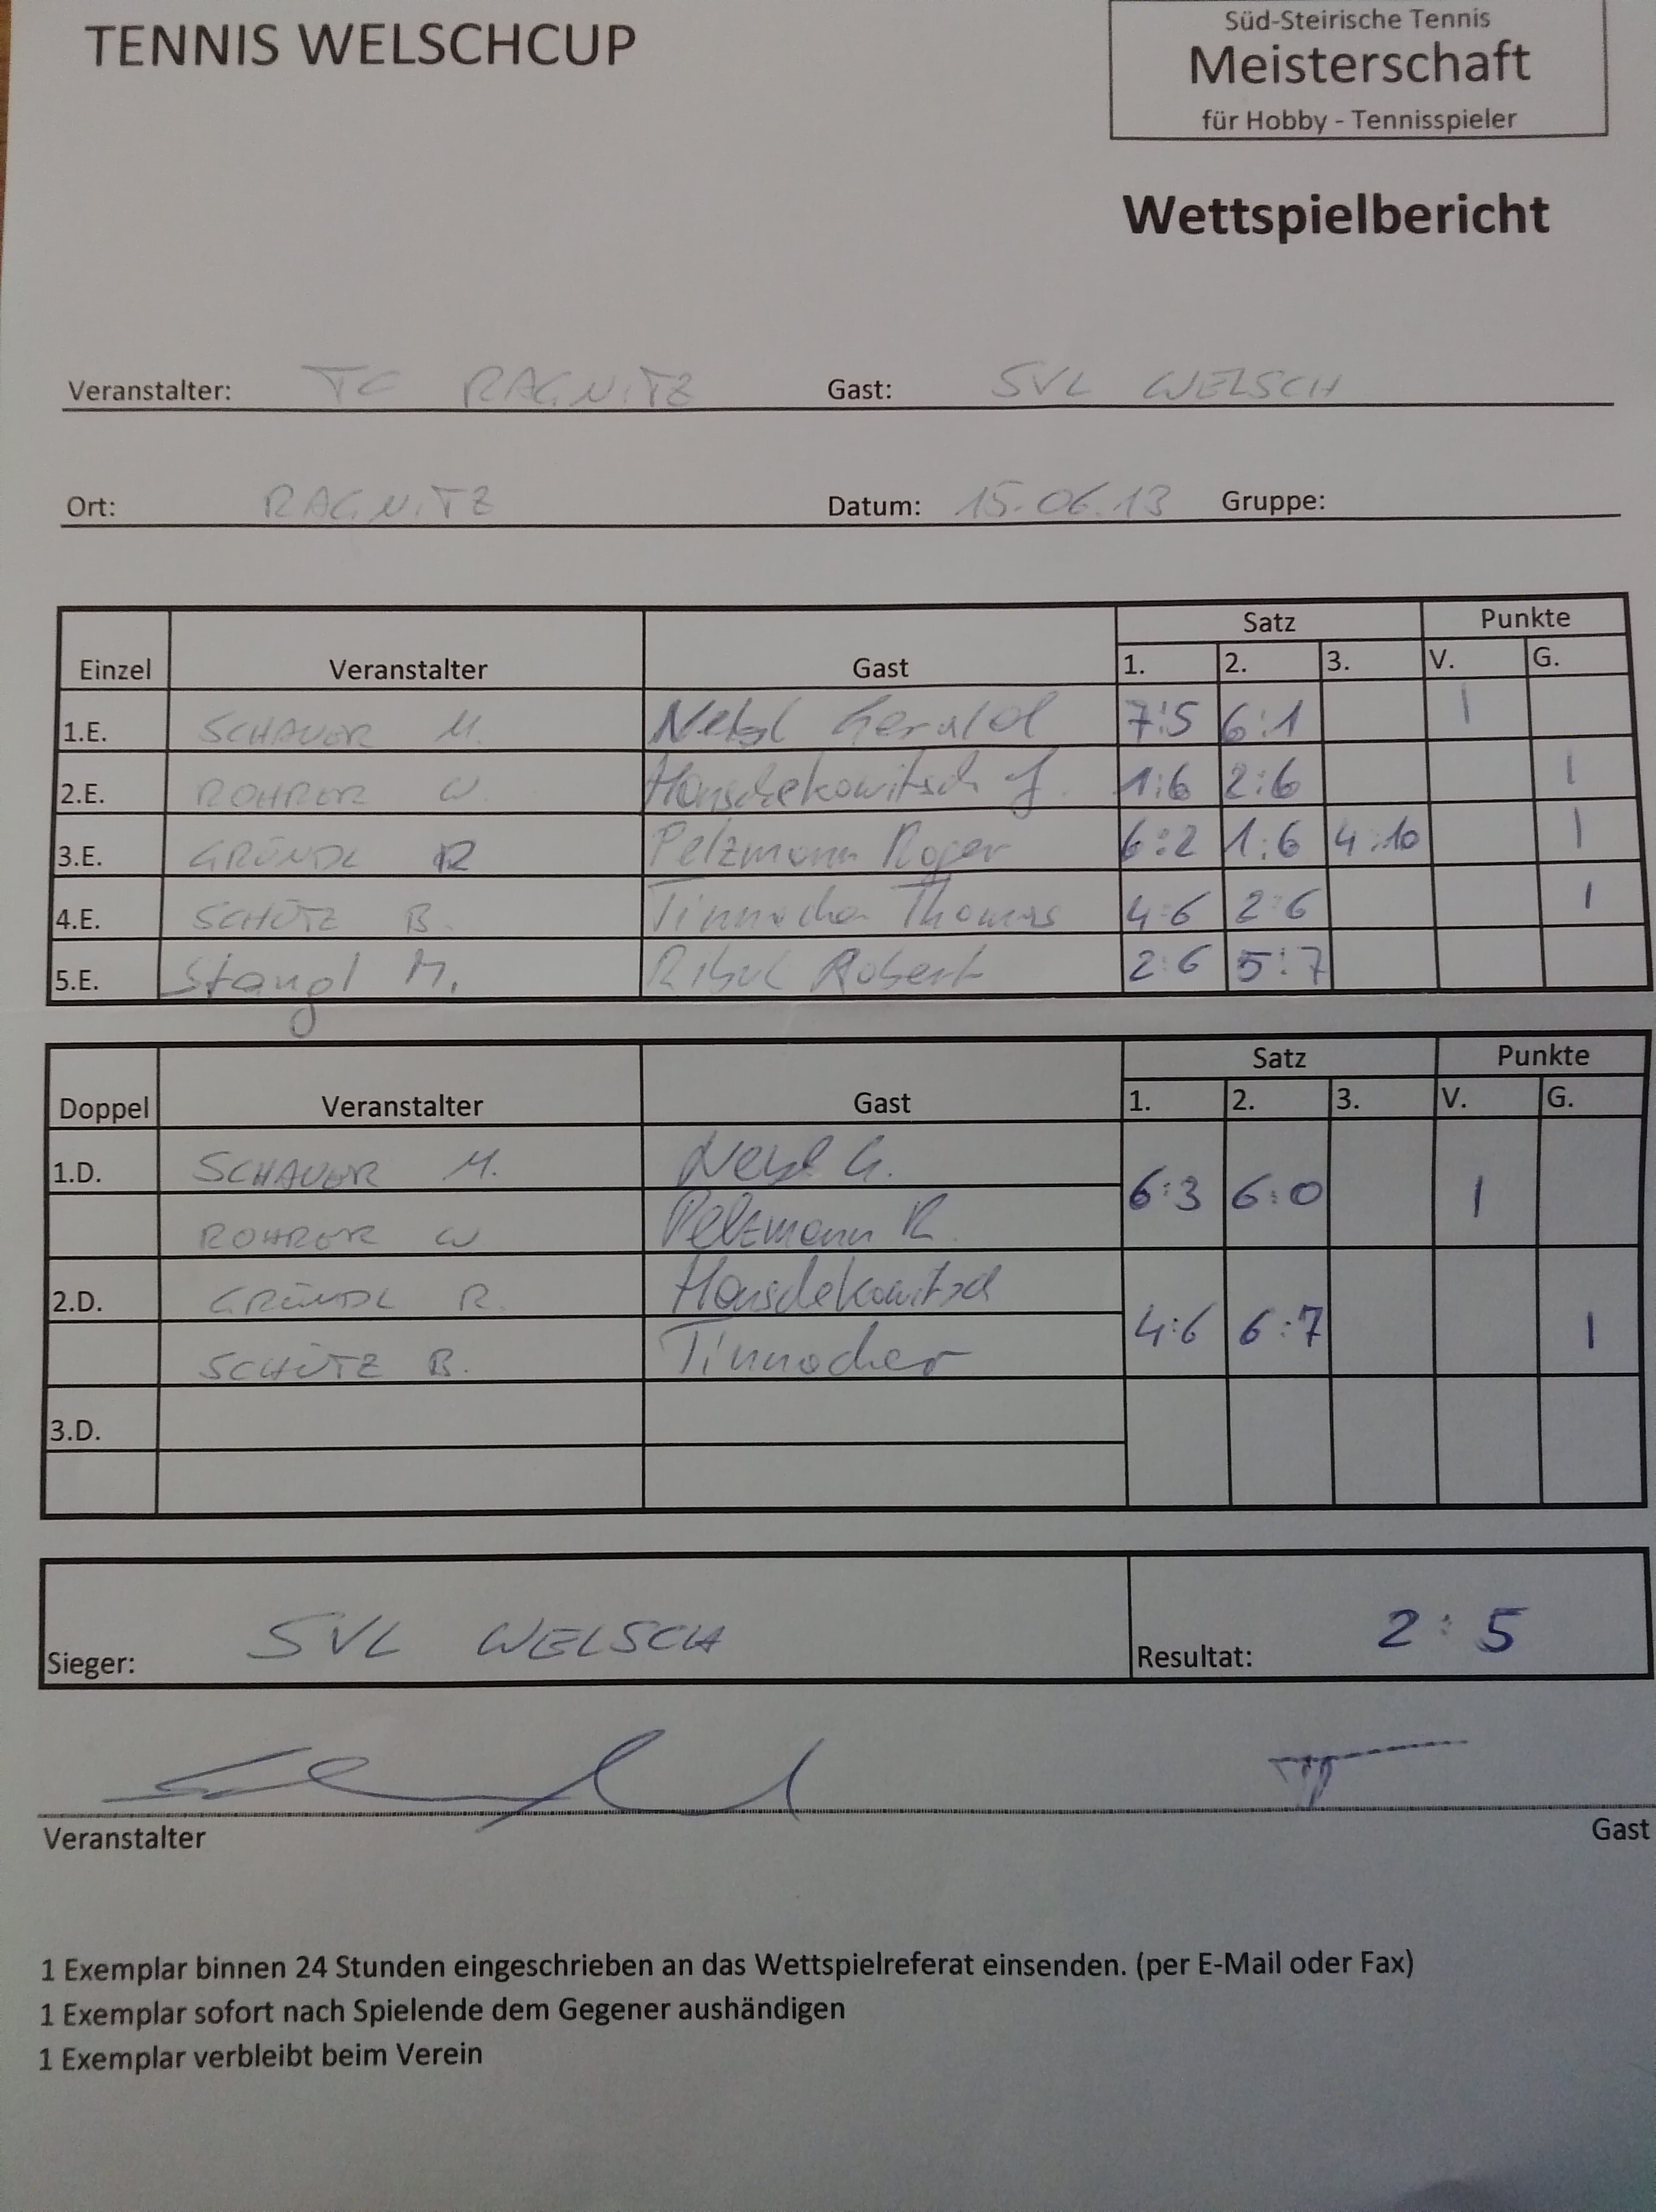 TENNIS WELSCHCUP
Süd-Steirische Tennis
Meisterschaft
für Hobby - Tennisspieler
Wettspielbericht
Veranstalter: TC RAGNITZ Gast: SVL WELSCH
Ort: RAGNITZ Datum: 15.06.13 Gruppe:
Satz Punkte
Einzel Veranstalter Gast 1. 2. 3. V. G.
1.E. SCHAUER M. Gerald 7:5 6:1 1
2.E. ROHRER W. J. 1:6 2:6 1
3.E. GRÜNDL R Pelzmann Roger 6:2 1:6 4:10 1
4.E. SCHÜTZ B. Tinnacher Thomas 4:6 2:6 1
5.E. Stangl M. Robert 2:6 5:7
Satz Punkte
Doppel Veranstalter Gast 1. 2. 3. V. G.
1.D. SCHAUER M. G. 6:3 6:0 1
ROHRER W Pelzmann R.
2.D. GRÜNDL R. 4:6 6:7 1
SCHÜTZ B. Tinnacher
3.D.
Sieger: SVL WELSCH Resultat: 2:5
Veranstalter Gast
1 Exemplar binnen 24 Stunden eingeschrieben an das Wettspielreferat einsenden. (per E-Mail oder Fax)
1 Exemplar sofort nach Spielende dem Gegener aushändigen
1 Exemplar verbleibt beim Verein